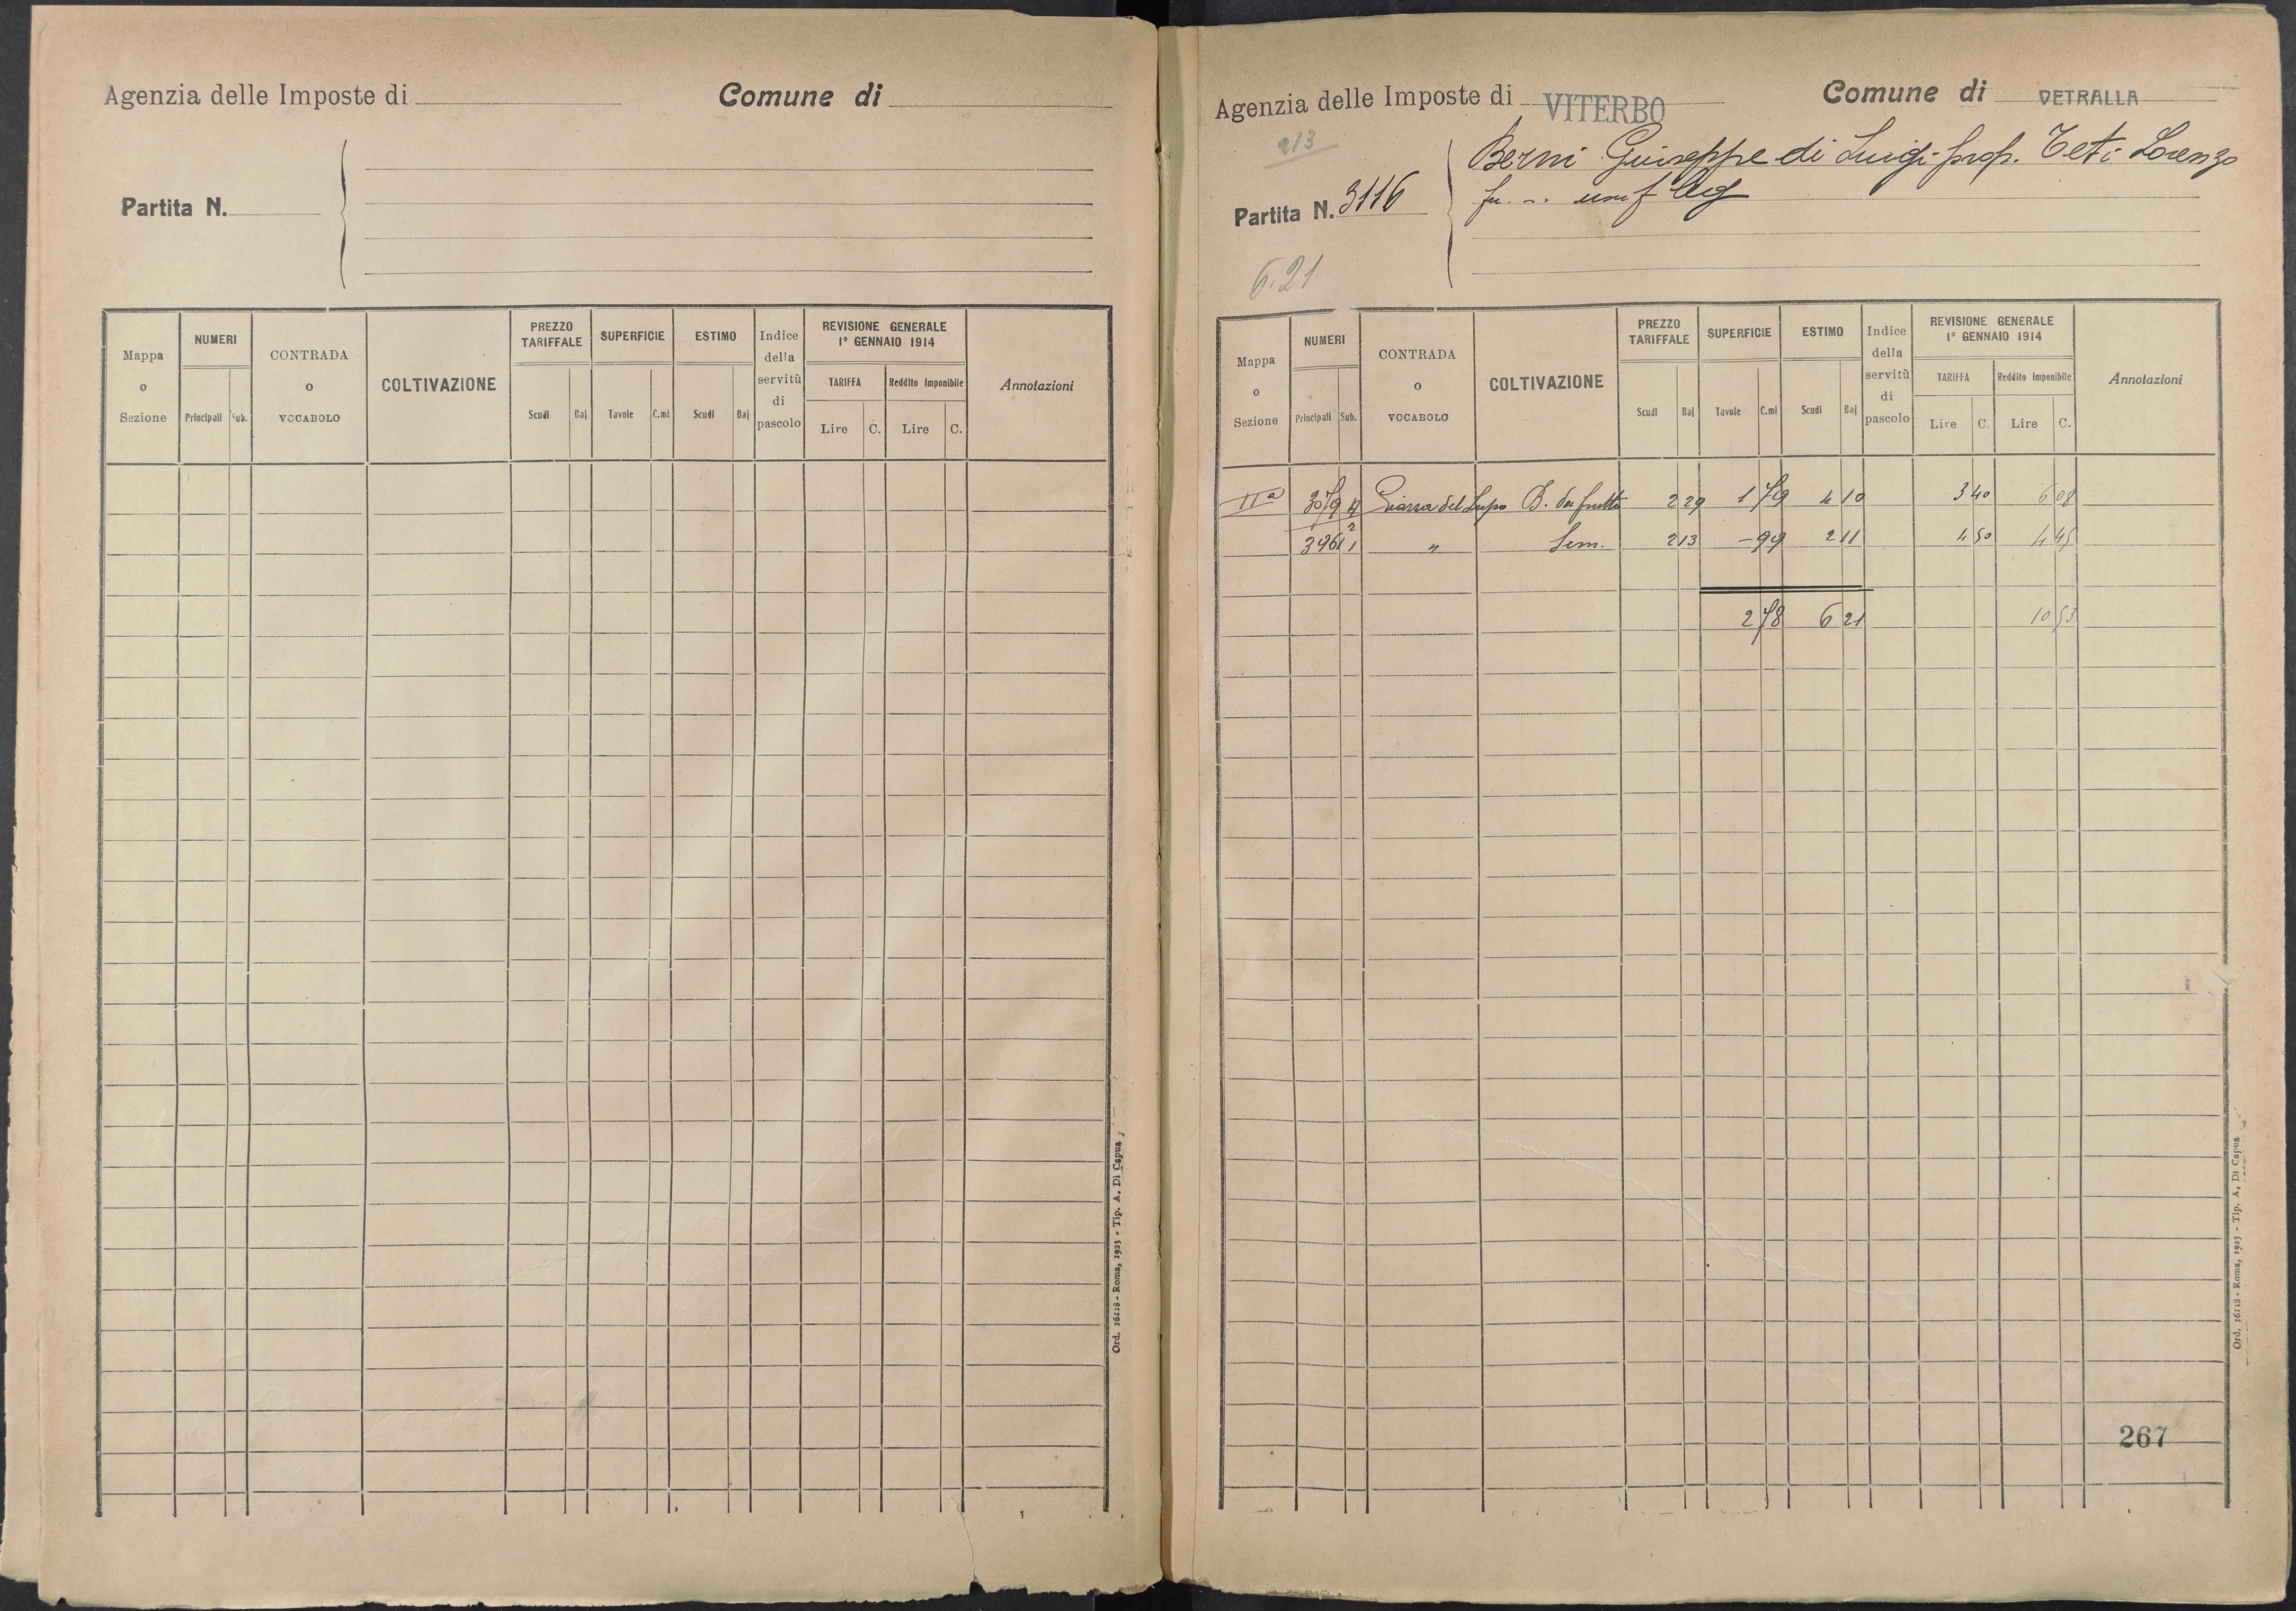 Agenzia delle Imposte di
Comune di
Partita N.
Mappa o Sezione
NUMERI
Principali Sub.
CONTRADA o VOCABOLO
COLTIVAZIONE
PREZZO TARIFFALE
Scudi Baj
SUPERFICIE
Tavole C.mi
ESTIMO
Scudi Baj
Indice della servitù di pascolo
REVISIONE GENERALE
1° GENNAIO 1914
TARIFFA Reddito Imponibile
Lire C. Lire C.
Annotazioni
Ord. 16118 - Roma, 1923 - Tip. A. Di Capua
Agenzia delle Imposte di VITERBO
Comune di VETRALLA
213
Berni Giuseppe di Luigi prop. Teti Lorenzo
fu usuf
Partita N. 3116
6.21
Mappa o Sezione
NUMERI
Principali Sub.
CONTRADA o VOCABOLO
COLTIVAZIONE
PREZZO TARIFFALE
Scudi Baj
SUPERFICIE
Tavole C.mi
ESTIMO
Scudi Baj
Indice della servitù di pascolo
REVISIONE GENERALE
1° GENNAIO 1914
TARIFFA Reddito Imponibile
Lire C. Lire C.
Annotazioni
IIª 3079 del Lupo B. da frutto 2 29 1 79 4 10 3 40 6 08
3961 1 " Sem. 2 13 - 99 2 11 4 50 4 45
2 78 6 21 10 53
267
Ord. 16118 - Roma, 1923 - Tip. A. Di Capua